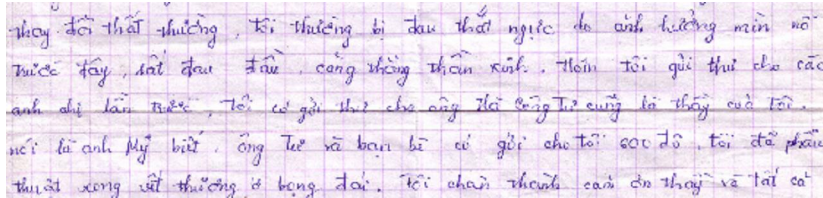 thay đổi thất thường, tôi thường bị đau thắt ngực do ảnh hưởng mìn nổ
trước đây, rất đau đầu, căng thẳng thần kinh. Hôm tôi gửi thư cho các
anh chị lần trước, tôi có gởi thư cho ông Hà Công Tư cũng là thầy của tôi.
nói là anh Mỹ biết. ông Tư và bạn bè có gởi cho tôi 600 đô, tôi đã phẫu
thuật xong vết thương ở bọng đái. Tôi chân thành cảm ơn thầy và tất cả